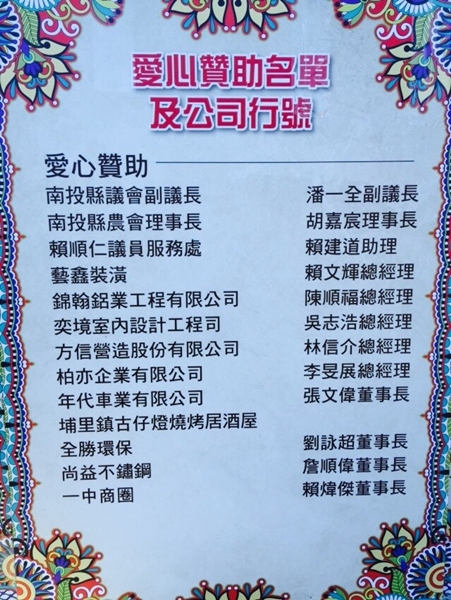 愛心贊助名單
及公司行號
愛心贊助
南投縣議會副議長 潘一全副議長
南投縣農會理事長 胡嘉宸理事長
賴順仁議員服務處 賴建道助理
藝鑫裝潢 賴文輝總經理
錦翰鋁業工程有限公司 陳順福總經理
奕境室內設計工程司 吳志浩總經理
方信營造股份有限公司 林信介總經理
柏亦企業有限公司 李旻展總經理
年代車業有限公司 張文偉董事長
埔里鎮古仔燈燒烤居酒屋
全勝環保 劉詠超董事長
尚益不鏽鋼 詹順偉董事長
一中商圈 賴煒傑董事長